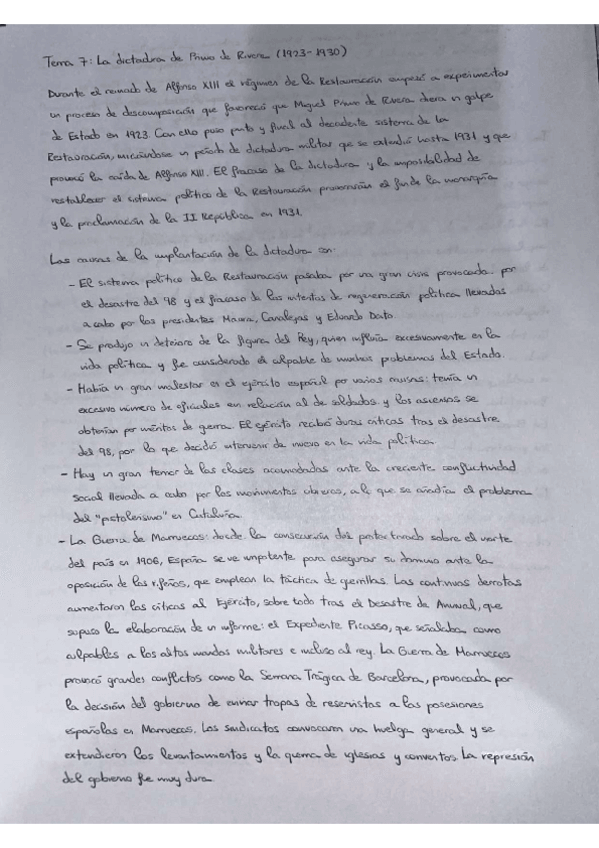 Tema 7: La dictadura de Primo de Rivera (1923-1930)
Durante el reinado de Alfonso XIII el régimen de la Restauración empezó a experimentar
un proceso de descomposición que favoreció que Miguel Primo de Rivera diera un golpe
de Estado en 1923. Con ello puso punto y final al decadente sistema de la
Restauración, iniciándose un período de dictadura militar que se extendió hasta 1931 y que
provocó la caída de Alfonso XIII. El fracaso de la dictadura y la imposibilidad de
restablecer el sistema político de la Restauración provocarían el fin de la monarquía
y la proclamación de la II República en 1931.
Las causas de la implantación de la dictadura son:
- El sistema político de la Restauración pasaba por una gran crisis provocada por
el desastre del 98 y el fracaso de los intentos de regeneración política llevados
a cabo por los presidentes Maura, Canalejas y Eduardo Dato.
- Se produjo un deterioro de la figura del Rey, quien influía excesivamente en la
vida política y fue considerado el culpable de muchos problemas del Estado.
- Había un gran malestar en el ejército español por varias causas: tenía un
excesivo número de oficiales en relación al de soldados y los ascensos se
obtenían por méritos de guerra. El ejército recibió duras críticas tras el desastre
del 98, por lo que decidió intervenir de nuevo en la vida política.
- Hay un gran temor de las clases acomodadas ante la creciente conflictividad
social llevada a cabo por los movimientos obreros, a lo que se añadía el problema
del "pistolerismo" en Cataluña.
- La Guerra de Marruecos: desde la consecución del protectorado sobre el norte
del país en 1906, España se ve impotente para asegurar su dominio ante la
oposición de los rifeños, que emplean la táctica de guerrillas. Las continuas derrotas
aumentaron las críticas al Ejército, sobre todo tras el Desastre de Annual, que
supuso la elaboración de un informe: el Expediente Picasso, que señalaba como
culpables a los altos mandos militares e incluso al rey. La Guerra de Marruecos
provocó grandes conflictos como la Semana Trágica de Barcelona, provocada por
la decisión del gobierno de enviar tropas de reservistas a las posesiones
españolas en Marruecos. Los sindicatos convocaron una huelga general y se
extendieron los levantamientos y la quema de iglesias y conventos. La represión
del gobierno fue muy dura.